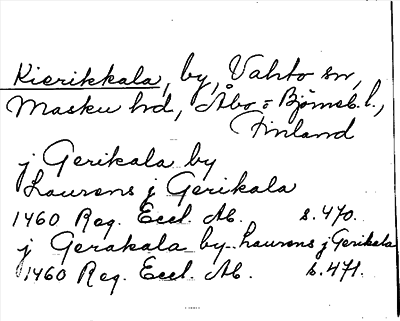 Kierikkala, by, Vahto sn,
Masku hd, Åbo = Björneb. l.,
Finland
j Gerikala by
Laurens j Gerikala
1460 Reg. Eccl. Ab. s. 470.
j Gerakala by Laurens j Gerikala
1460 Reg. Eccl. Ab. s. 471.